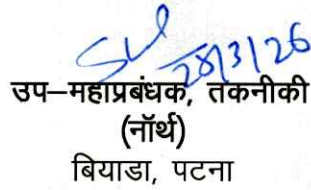 28/3/26
उप–महाप्रबंधक, तकनीकी
(नॉर्थ)
बियाडा, पटना